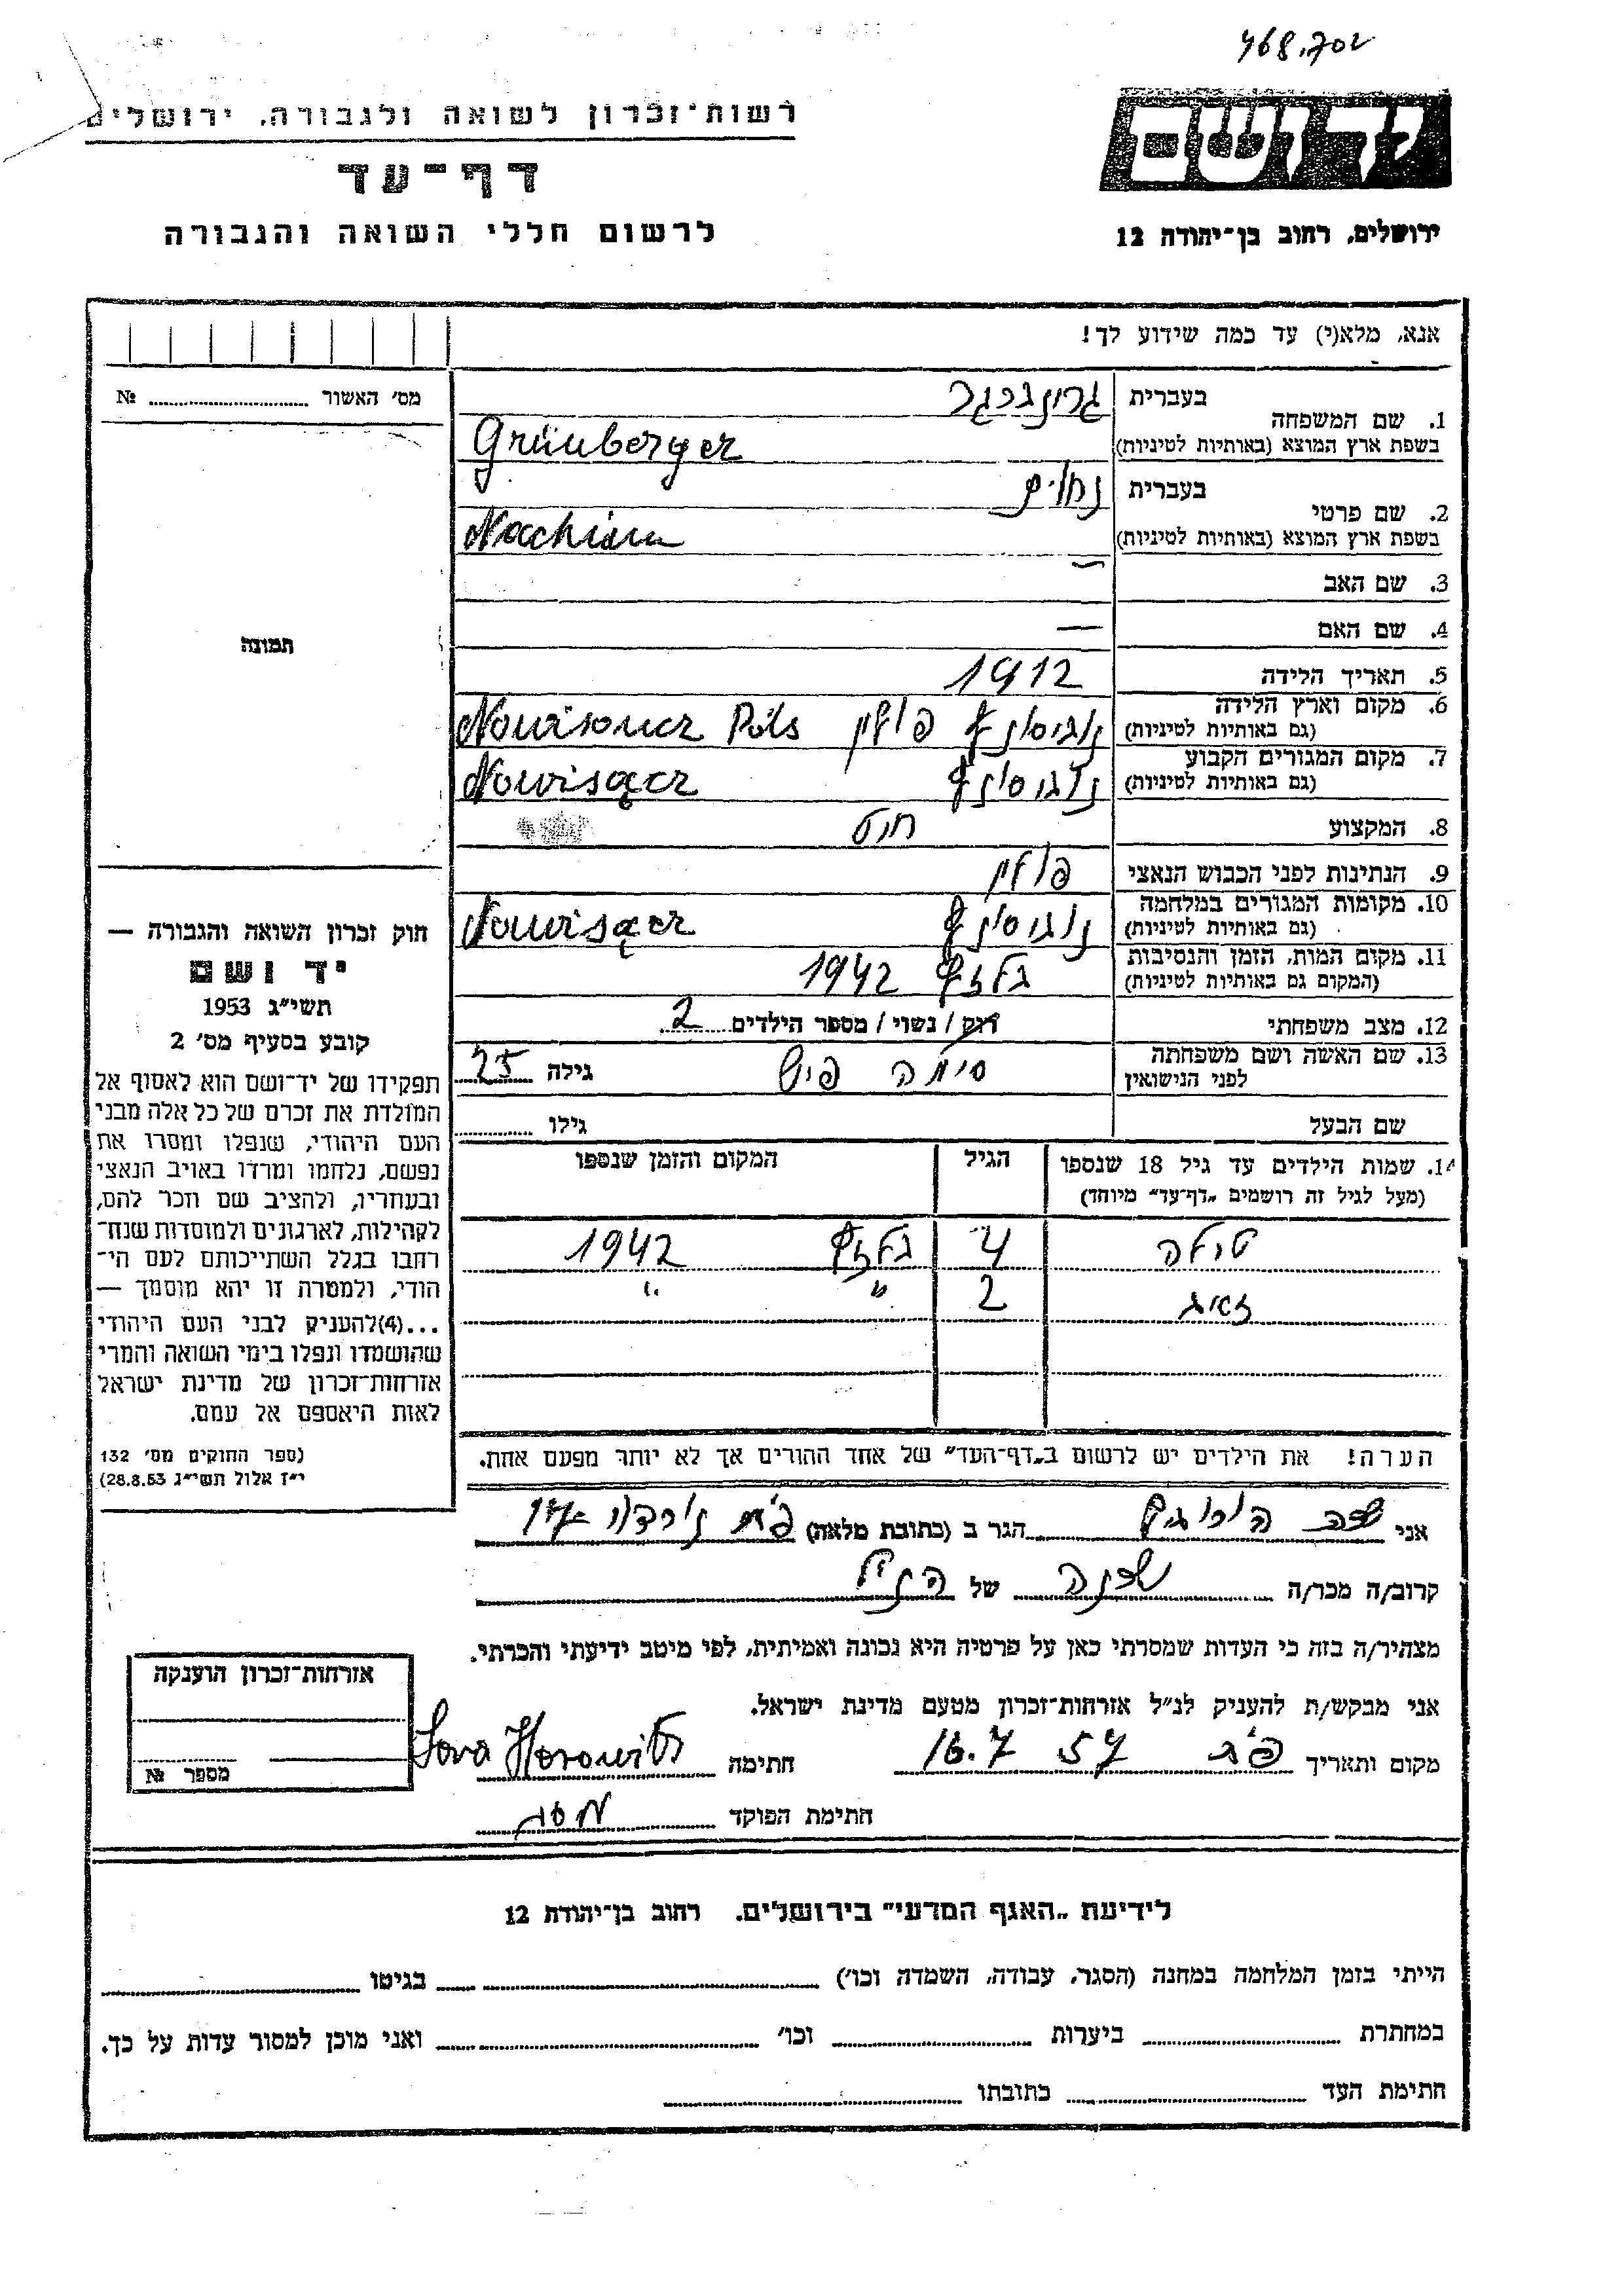 468.702
רשות־זכרון לשואה ולגבורה, ירושלים
דף־עד
לרשום חללי השואה והגבורה
ידושם
ירושלים, רחוב בן־יהודה 12
אנא, מלא(י) עד כמה שידוע לך!
מס׳ האשור № 
1. שם המשפחה
בעברית גרונברגר
בשפת ארץ המוצא (באותיות לטיניות) Grünberger
2. שם פרטי
בעברית נחים
בשפת ארץ המוצא (באותיות לטיניות) Nachium
3. שם האב —
4. שם האם —
5. תאריך הלידה 1912
6. מקום וארץ הלידה
(גם באותיות לטיניות) פולין
7. מקום המגורים הקבוע
(גם באותיות לטיניות) Nowisącz
8. המקצוע
9. הנתינות לפני הכבוש הנאצי פולין
10. מקומות המגורים במלחמה
(גם באותיות לטיניות) Nowisącz
11. מקום המות, הזמן והנסיבות
(המקום גם באותיות לטיניות) בלזץ 1942
12. מצב משפחתי רוק / נשוי / מספר הילדים 2
13. שם האשה ושם משפחתה
לפני הנישואין גילה 25
שם הבעל גילו
14. שמות הילדים עד גיל 18 שנספו
(מעל לגיל זה רושמים „דף־עד״ מיוחד)
הגיל
המקום והזמן שנספו
4 בלזץ 1942
2 " "
הערה! את הילדים יש לרשום ב„דף־העד״ של אחד ההורים אך לא יותר מפעם אחת.
תמונה
חוק זכרון השואה והגבורה —
יד ושם
תשי״ג 1953
קובע בסעיף מס׳ 2
תפקידו של יד־ושם הוא לאסוף אל
המולדת את זכרם של כל אלה מבני
העם היהודי, שנפלו ומסרו את
נפשם, נלחמו ומרדו באויב הנאצי
ובעוזריו, ולהציב שם וזכר להם,
לקהילות, לארגונים ולמוסדות שנח־
רבו בגלל השתייכותם לעם הי־
הודי, ולמטרה זו יהא מוסמך —
...(4)להעניק לבני העם היהודי
שהושמדו ונפלו בימי השואה והמרי
אזרחות־זכרון של מדינת ישראל
לאות היאספם אל עמם.
(ספר החוקים מס׳ 132
י״ז אלול תשי״ג 28.8.53)
אני הורוביץ הגר ב (כתובת מלאה) פ״ת
קרוב/ה מכר/ה שכנה של הנ״ל
מצהיר/ה בזה כי העדות שמסרתי כאן על פרטיה היא נכונה ואמיתית, לפי מיטב ידיעתי והכרתי.
אני מבקש/ת להעניק לנ״ל אזרחות־זכרון מטעם מדינת ישראל.
מקום ותאריך פ״ת 16.7 57 חתימה Horowitz
חתימת הפוקד
אזרחות־זכרון הוענקה
מספר №
לידיעת „האגף המדעי״ בירושלים. רחוב בן־יהודת 12
הייתי בזמן המלחמה במחנה (הסגר, עבודה, השמדה וכו׳) בגיטו
במחתרת ביערות וכו׳ ואני מוכן למסור עדות על כך.
חתימת העד כתובתו